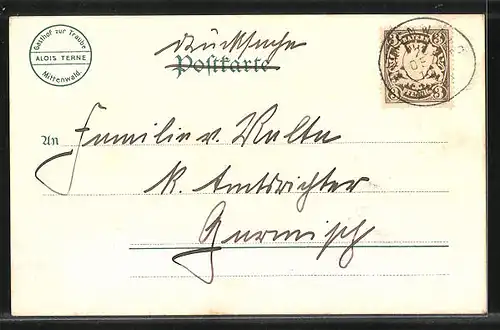 Gasthof zur Traube
ALOIS TERNE
Mittenwald.
Drucksache
Postkarte
BAYERN
3 3
An Familie v. Welte
K. Amtsrichter
Garmisch